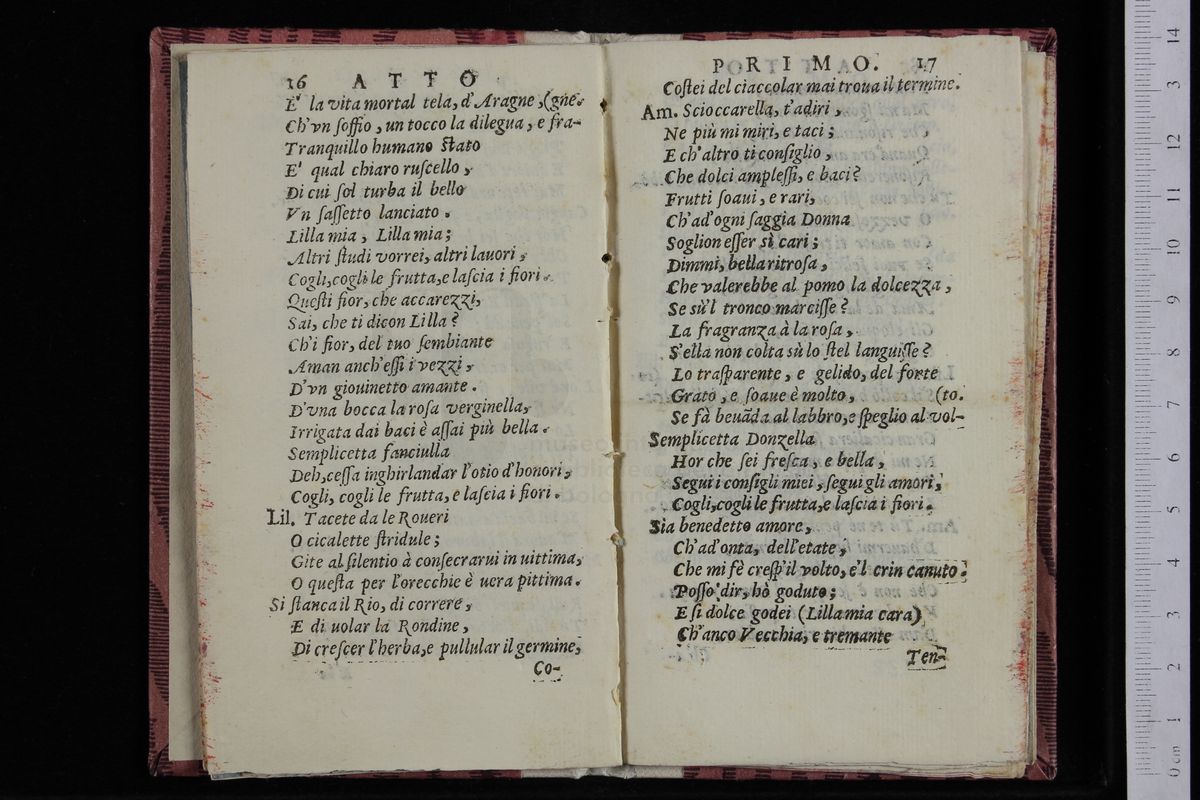 16 ATTO
E' la vita mortal tela, d'Aragne, (gne.
Ch'vn soffio, un tocco la dilegua, e fra-
Tranquillo humano stato
E' qual chiaro ruscello,
Di cui sol turba il bello
Vn sassetto lanciato.
Lilla mia, Lilla mia;
Altri studi vorrei, altri lauori,
Cogli, cogli le frutta, e lascia i fiori.
Questi fior, che accarezzi,
Sai, che ti dicon Lilla?
Ch'i fior, del tuo sembiante
Aman anch'essi i vezzi,
D'vn giouinetto amante.
D'vna bocca la rosa verginella,
Irrigata dai baci è assai più bella.
Semplicetta fanciulla
Deh, cessa inghirlandar l'otio d'honori,
Cogli, cogli le frutta, e lascia i fiori.
Lil. Tacete da le Roueri
O cicalette stridule;
Gite al silentio à consecrarui in uittima,
O questa per l'orecchie è uera pittima.
Si stanca il Rio, di correre,
E di uolar la Rondine,
Di crescer l'herba, e pullular il germine,
Co-
PORIMO. 17
Costei del ciaccolar mai troua il termine.
Am. Scioccarella, t'adiri,
Ne più mi miri, e taci;
E ch'altro ti consiglio,
Che dolci amplessi, e baci?
Frutti soaui, e rari,
Ch'ad'ogni saggia Donna
Soglion esser sì cari;
Dimmi, bella ritrosa,
Che valerebbe al pomo la dolcezza,
Se sù'l tronco marcisse?
La fragranza à la rosa,
S'ella non colta sù lo stel languisse?
Lo trasparente, e gelido, del fonte
Grato, e soaue è molto, (to.
Se fà beuãda al labbro, e speglio al vol-
Semplicetta Donzella
Hor che sei fresca, e bella,
Segui i consigli miei, segui gli amori,
Cogli, cogli le frutta, e lascia i fiori.
Sia benedetto amore,
Ch'ad'onta, dell'etate,
Che mi fè cresp'il volto, e'l crin canuto.
Posso dir, hò goduto;
E si dolce godei (Lilla mia cara)
Ch'anco Vecchia, e tremante
Ten-